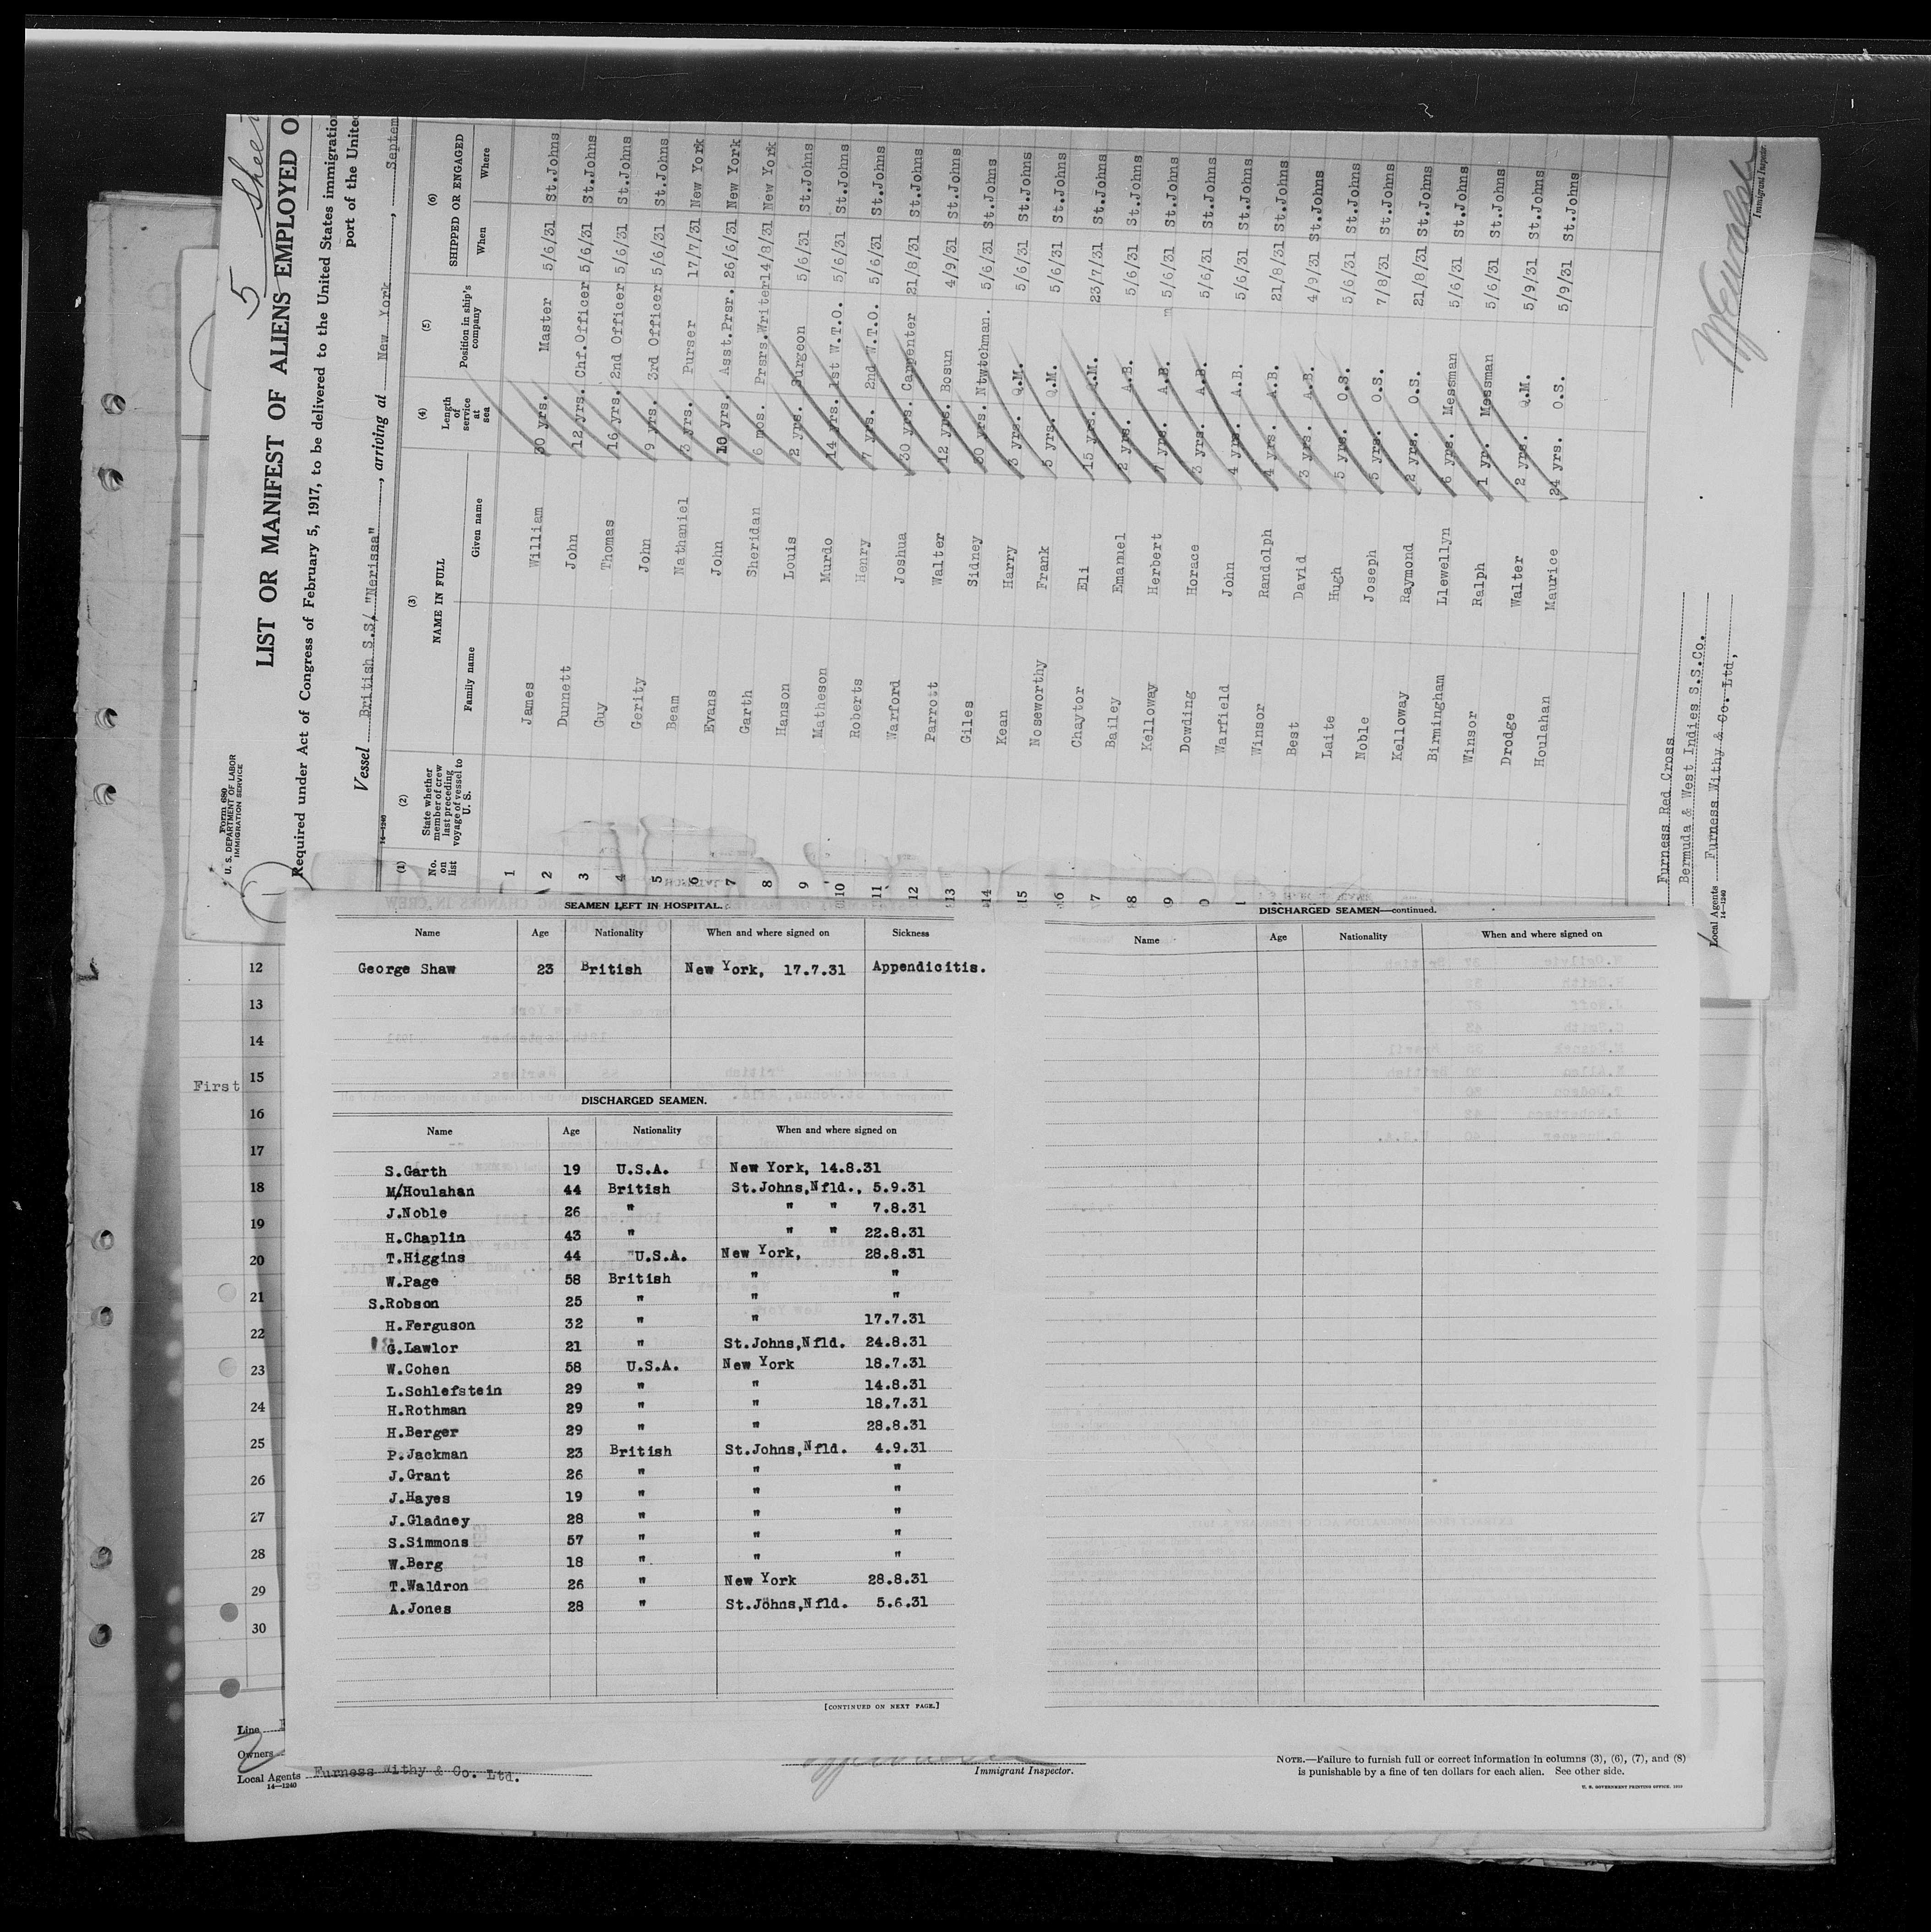 5 Sheet
Form 680
U. S. DEPARTMENT OF LABOR
IMMIGRATION SERVICE
LIST OR MANIFEST OF ALIENS EMPLOYED O
Required under Act of Congress of February 5, 1917, to be delivered to the United States immigration
port of the United
Vessel British S.S/ "Nerissa", arriving at New York, Septem
14—1240
(1) (2) (3) (4) (5) (6)
No. on list
State whether member of crew last preceding voyage of vessel to U. S.
NAME IN FULL
Family name Given name
Length of service at sea
Position in ship's company
SHIPPED OR ENGAGED
When Where
1 James William 30 yrs. Master 5/6/31 St.Johns
2 Dunnett John 12 yrs. Chf.Officer 5/6/31 St.Johns
3 Guy Thomas 16 yrs. 2nd Officer 5/6/31 St.Johns
4 Gerity John 9 yrs. 3rd Officer 5/6/31 St.Johns
5 Beam Nathaniel 3 yrs. Purser 17/7/31 New York
6 Evans John 10 yrs. Asst.Prsr. 26/6/31 New York
7 Garth Sheridan 6 mos. Prsrs.Writer 14/8/31 New York
8 Hanson Louis 2 yrs. Surgeon 5/6/31 St.Johns
9 Matheson Murdo 14 yrs. 1st W.T.O. 5/6/31 St.Johns
10 Roberts Henry 7 yrs. 2nd W.T.O. 5/6/31 St.Johns
11 Warford Joshua 30 yrs. Carpenter 21/8/31 St.Johns
12 Parrott Walter 12 yrs. Bosun 4/9/31 St.Johns
13 Giles Sidney 30 yrs. Ntwtchman. 5/6/31 St.Johns
14 Kean Harry 3 yrs. Q.M. 5/6/31 St.Johns
15 Noseworthy Frank 5 yrs. Q.M. 5/6/31 St.Johns
6 Chaytor Eli 15 yrs. Q.M. 23/7/31 St.Johns
7 Bailey Emanuel 2 yrs. A.B. 5/6/31 St.Johns
8 Kelloway Herbert 7 yrs. A.B. 5/6/31 St.Johns
9 Dowding Horace 3 yrs. A.B. 5/6/31 St.Johns
0 Warfield John 4 yrs. A.B. 5/6/31 St.Johns
1 Winsor Randolph 4 yrs. A.B. 21/8/31 St.Johns
Best David 3 yrs. A.B. 4/9/31 St.Johns
Laite Hugh 5 yrs. O.S. 5/6/31 St.Johns
Noble Joseph 5 yrs. O.S. 7/8/31 St.Johns
Kelloway Raymond 2 yrs. O.S. 21/8/31 St.Johns
Birmingham Llewellyn 6 yrs. Messman 5/6/31 St.Johns
Winsor Ralph 1 yr. Messman 5/6/31 St.Johns
Drodge Walter 2 yrs. Q.M. 5/9/31 St.Johns
Houlahan Maurice 24 yrs. O.S. 5/9/31 St.Johns
Furness Red Cross
Bermuda & West Indies S.S.Co.
Local Agents Furness Withy & Co. Ltd,
14—1240
Immigrant Inspector
SEAMEN LEFT IN HOSPITAL.
Name Age Nationality When and where signed on Sickness
George Shaw 23 British New York, 17.7.31 Appendicitis.
DISCHARGED SEAMEN.
Name Age Nationality When and where signed on
S.Garth 19 U.S.A. New York, 14.8.31
M/Houlahan 44 British St.Johns,Nfld., 5.9.31
J.Noble 26 " " " 7.8.31
H.Chaplin 43 " " " 22.8.31
T.Higgins 44 "U.S.A. New York, 28.8.31
W.Page 58 British " "
S.Robson 25 " " "
H.Ferguson 32 " " 17.7.31
G.Lawlor 21 " St.Johns,Nfld. 24.8.31
W.Cohen 58 U.S.A. New York 18.7.31
L.Schlefstein 29 " " 14.8.31
H.Rothman 29 " " 18.7.31
H.Berger 29 " " 28.8.31
P.Jackman 23 British St.Johns,Nfld. 4.9.31
J.Grant 26 " " "
J.Hayes 19 " " "
J.Gladney 28 " " "
S.Simmons 57 " " "
W.Berg 18 " " "
T.Waldron 26 " New York 28.8.31
A.Jones 28 " St.Johns,Nfld. 5.6.31
[CONTINUED ON NEXT PAGE.]
DISCHARGED SEAMEN—continued.
Name Age Nationality When and where signed on
12
13
14
First 15
16
17
18
19
20
21
22
23
24
25
26
27
28
29
30
Line
Owners
2
Local Agents Furness Withy & Co. Ltd.
14—1240
Immigrant Inspector.
NOTE.—Failure to furnish full or correct information in columns (3), (6), (7), and (8)
is punishable by a fine of ten dollars for each alien. See other side.
U. S. GOVERNMENT PRINTING OFFICE.